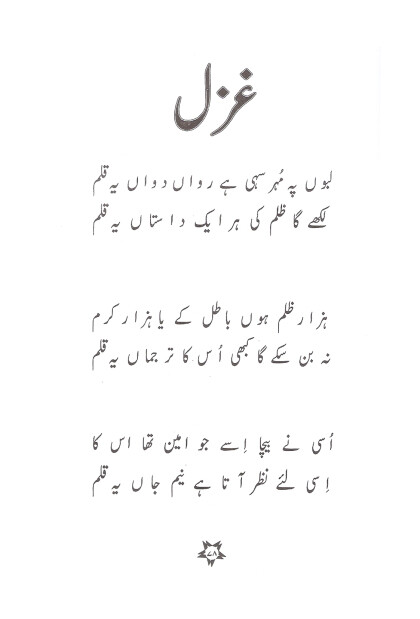 غزل
لبوں پہ مُہر سہی ہے رواں دواں یہ قلم
لکھے گا ظلم کی ہر ایک داستاں یہ قلم
ہزار ظلم ہوں باطل کے یا ہزار کرم
نہ بن سکے گا کبھی اُس کا ترجماں یہ قلم
اُسی نے بیچا اِسے جو امین تھا اس کا
اِسی لئے نظر آتا ہے نیم جاں یہ قلم
۷۸